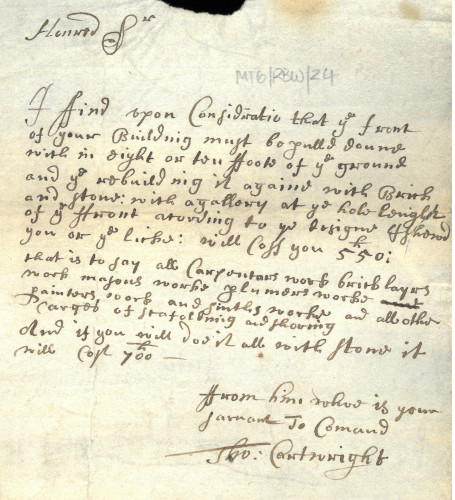 Honred Sr
MT6/RBW/24
I find upon Considratio that ye front
of your Building must be pulld downe
with in eight or ten ffoote of ye ground
and ye rebuilding it againe with Brick
and stone: with a gallery at ye hole lenght
of ye ffront acording to ye designe I shewd
you or ye like: will Cost you 550:
that is to say all Carpentars work brick layrs
work masons worke plumers worke
painters work and smiths worke and all other
Carges of scafolding and shoring
And if you will doe it all with stone it
will Cost 700
ffrom him whoe is your
sarvant To Comand
Tho: Cartwright